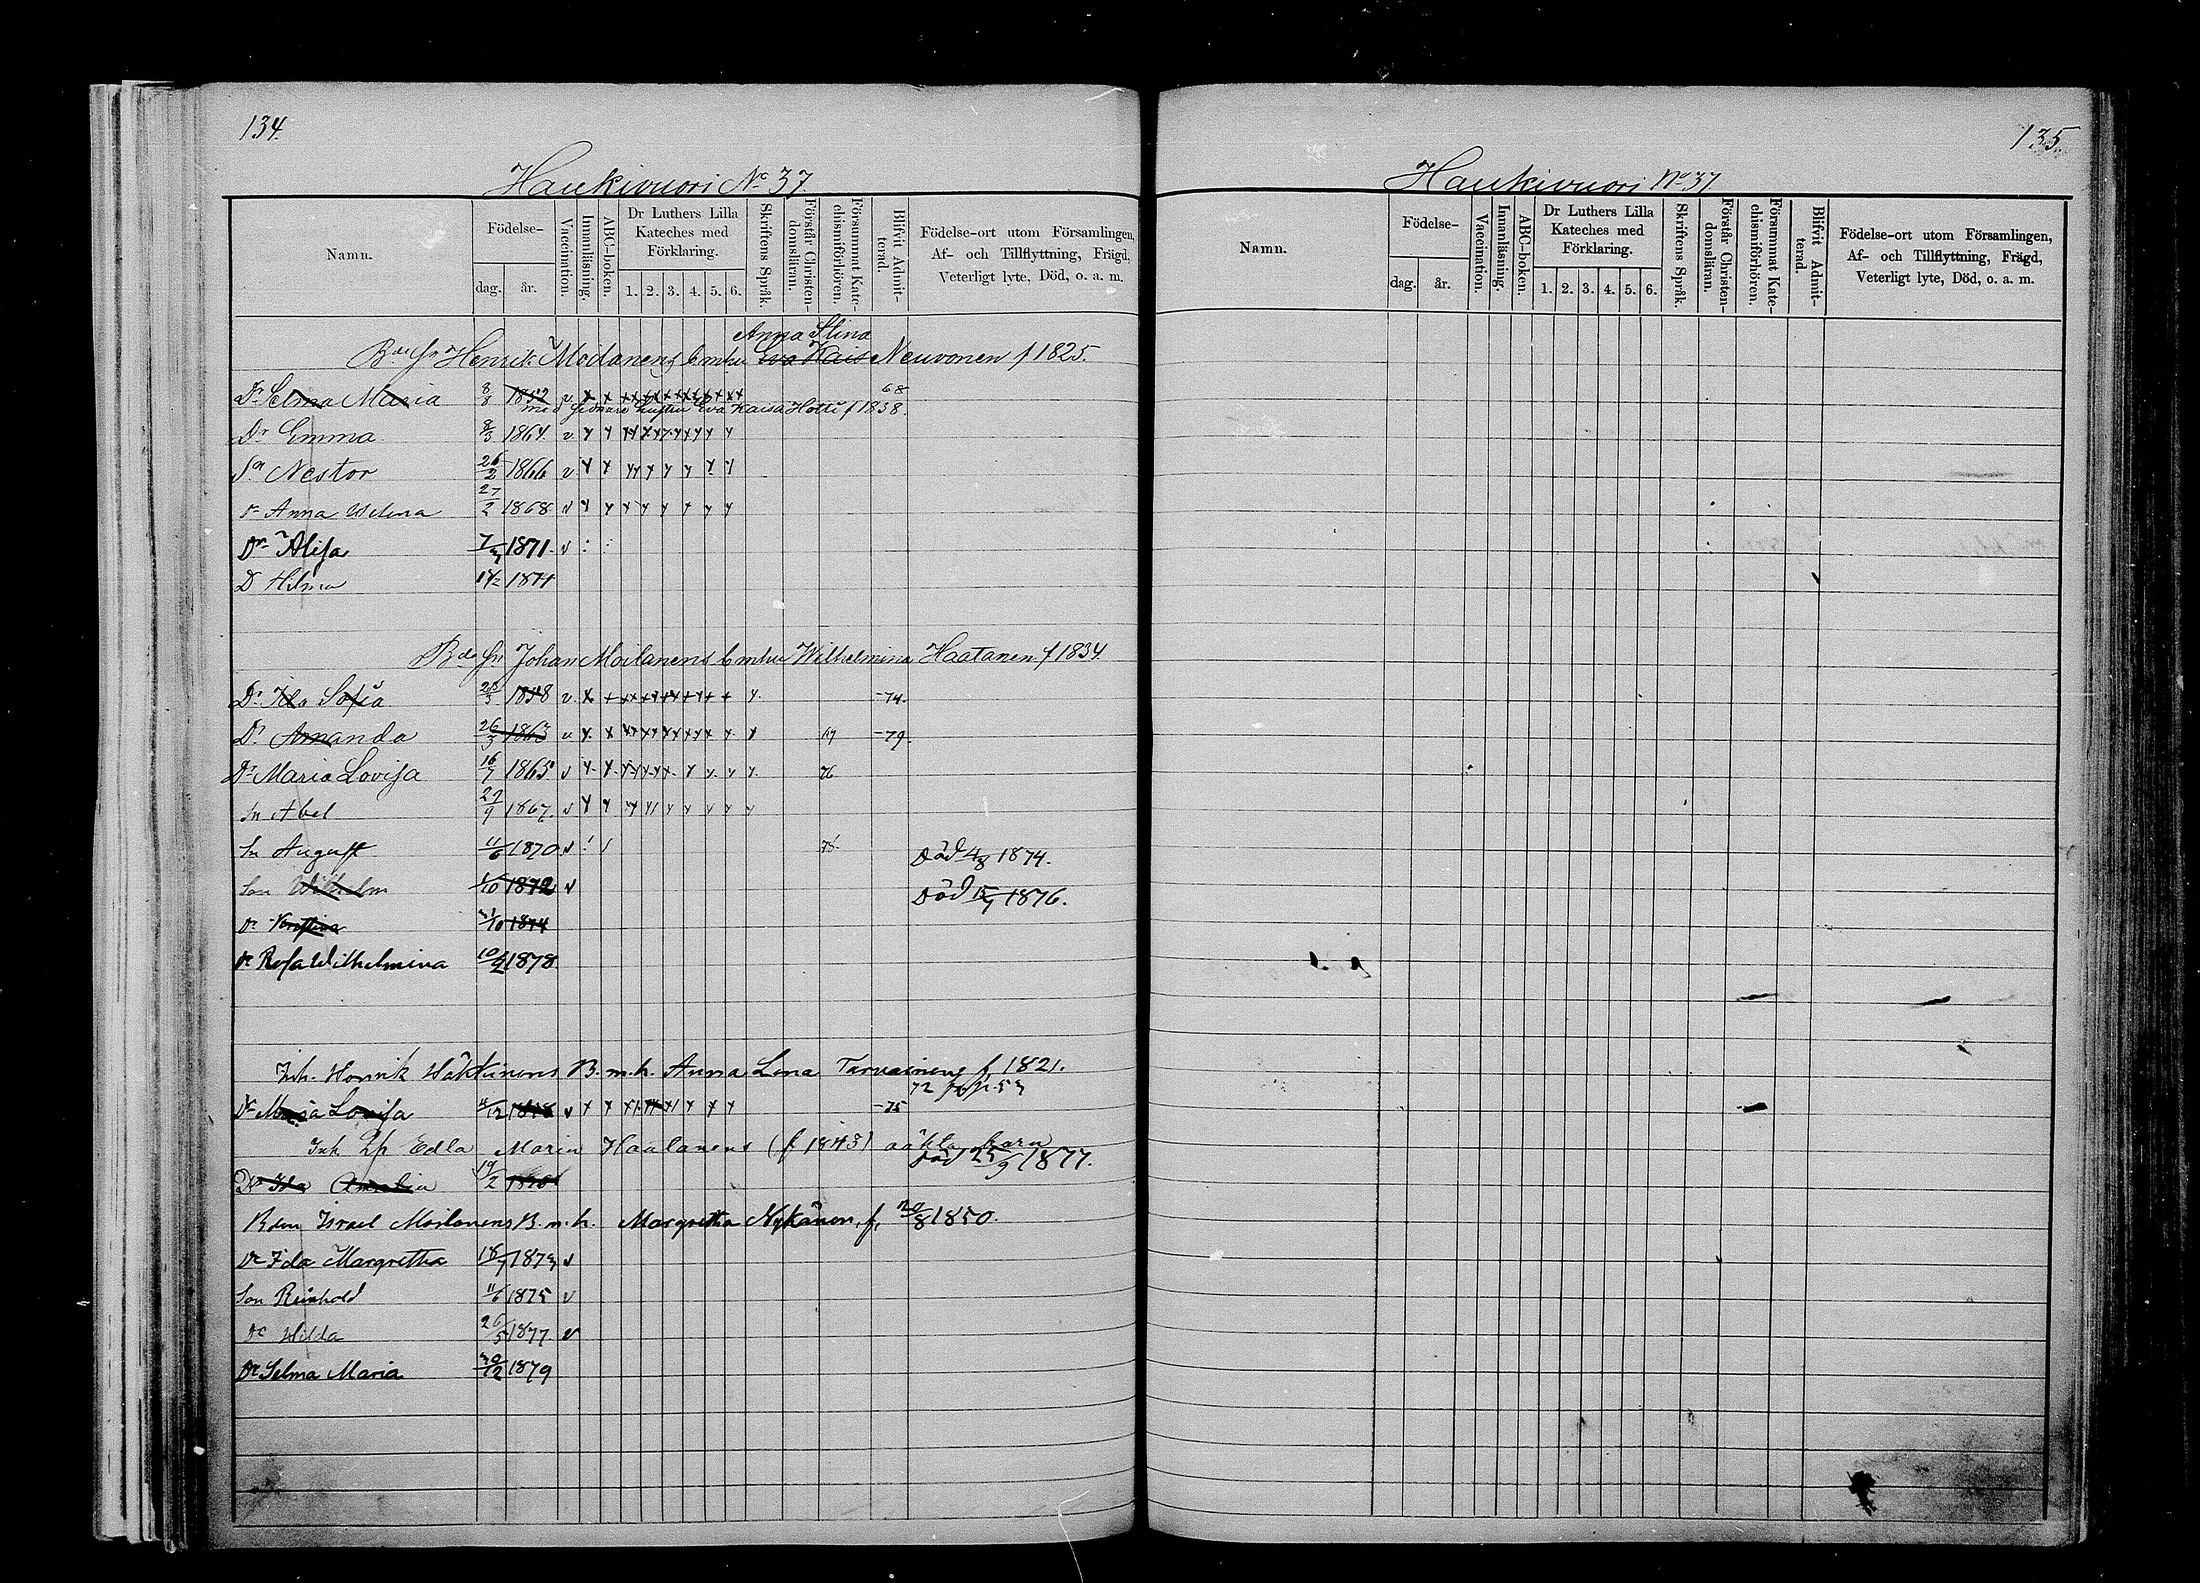 134.
Haukivuori No 37
Namn.
Födelse-
dag.
år.
Vaccination.
Innanläsning.
ABC-boken.
Dr Luthers Lilla
Kateches med
Förklaring.
1. 2. 3. 4. 5. 6.
Skriftens Språk.
Förstår Christen-
domsläran.
Försummat Kate-
chismiförhören.
Blifvit Admit-
terad.
Födelse-ort utom Församlingen,
Af- och Tillflyttning, Frägd,
Veterligt lyte, Död, o. a. m.
Anna Stina
Henrik Moilanens b m hu Eva Kaisa Neuvonen f 1825.
Dr Selma Maria 8/8 1852 v 68
med sednare hustru Eva Kaisa Hotti f 1838.
Dr Emma 8/3 1864 v
Sn Nestor 26/2 1866 v
Dr Anna Wilma 27/2 1868 v
Dr Alisa 7/7 1871 v
D Hilma 1871
Bde Sn Johan Moilanens b m hu Wilhelmina Haatanen f 1834.
Dr Ida Sofia 28/3 1858 v -74.
Dr Amanda 26/3 1863 v -79.
Dr Maria Lovisa 16/7 1865 v 76
Sn Abel 29/9 1867. v
Sn August 11/6 1870 v
Död 4/8 1874.
Son Wilhelm 1872 v
Död 15/1 1876.
Dr 1874
Dr Rosa Wilhelmina 10/2 1878
Inh. Henrik B. m. h. Anna Lena Tarvainens f. 1821.
Dr Maria Lovisa 1858 v -75
Inh Edla Maria Haatanens (f 1843) oäkta barn
Död 25/9 1877.
Dr Ida Amalia 19/2
Bden Israel Moilanens B. m. h. Margretha Nykänen, f. 20/8 1850.
Dr Ida Margretha 18/7 1873 v
Son Reinhold 11/6 1875 v
Dr Hilda 26/5 1877 v
Dr Selma Maria 30/12 1879
135.
Haukivuori No 37.
Namn.
Födelse-
dag.
år.
Vaccination.
Innanläsning.
ABC-boken.
Dr Luthers Lilla
Kateches med
Förklaring.
1. 2. 3. 4. 5. 6.
Skriftens Språk.
Förstår Christen-
domsläran.
Försummat Kate-
chismiförhören.
Blifvit Admit-
terad.
Födelse-ort utom Församlingen,
Af- och Tillflyttning, Frägd,
Veterligt lyte, Död, o. a. m.